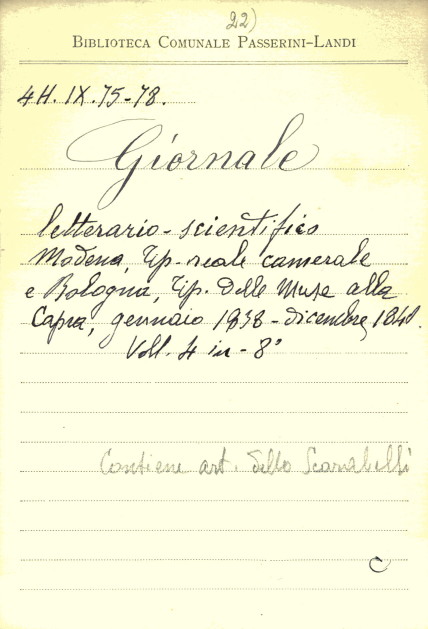 22)
BIBLIOTECA COMUNALE PASSERINI-LANDI
4H.IX.75-78.
Giornale
letterario-scientifico
Modena, Tip. reale camerale
e Bologna, Tip. delle Muse alla
Capra, gennaio 1838 - dicembre 1841.
Voll. 4 in-8°
Contiene art. dello Scarabelli
C